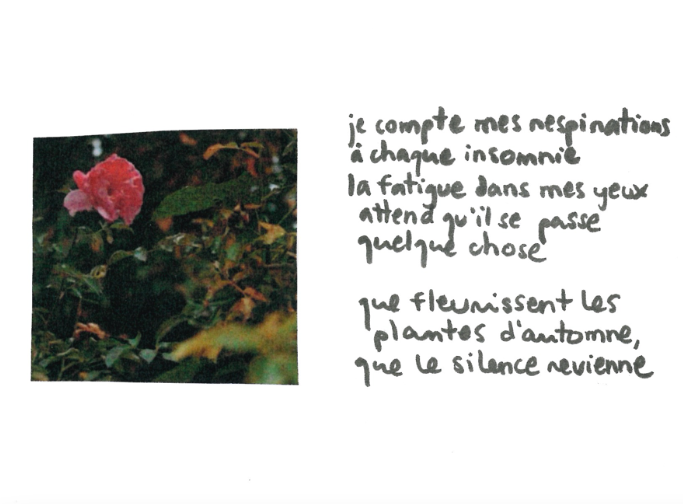 je compte mes respirations
à chaque insomnie
la fatigue dans mes yeux
attend qu'il se passe
quelque chose
que fleurissent les
plantes d'automne,
que le silence revienne